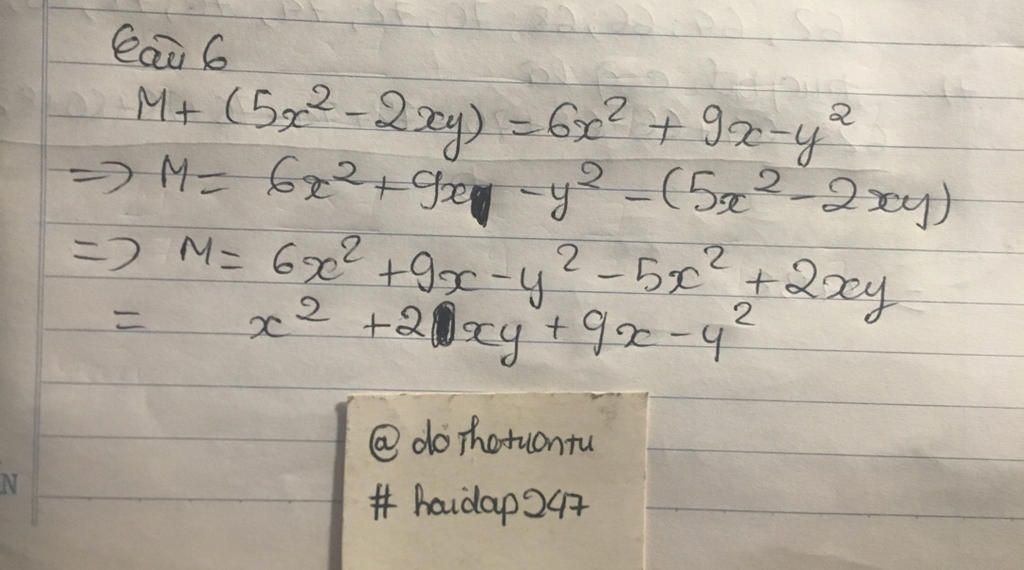 Câu 6
M + (5x² - 2xy) = 6x² + 9x - y²
=> M = 6x² + 9x - y² - (5x² - 2xy)
=> M = 6x² + 9x - y² - 5x² + 2xy
= x² + 2xy + 9x - y²
# hoidap247
N